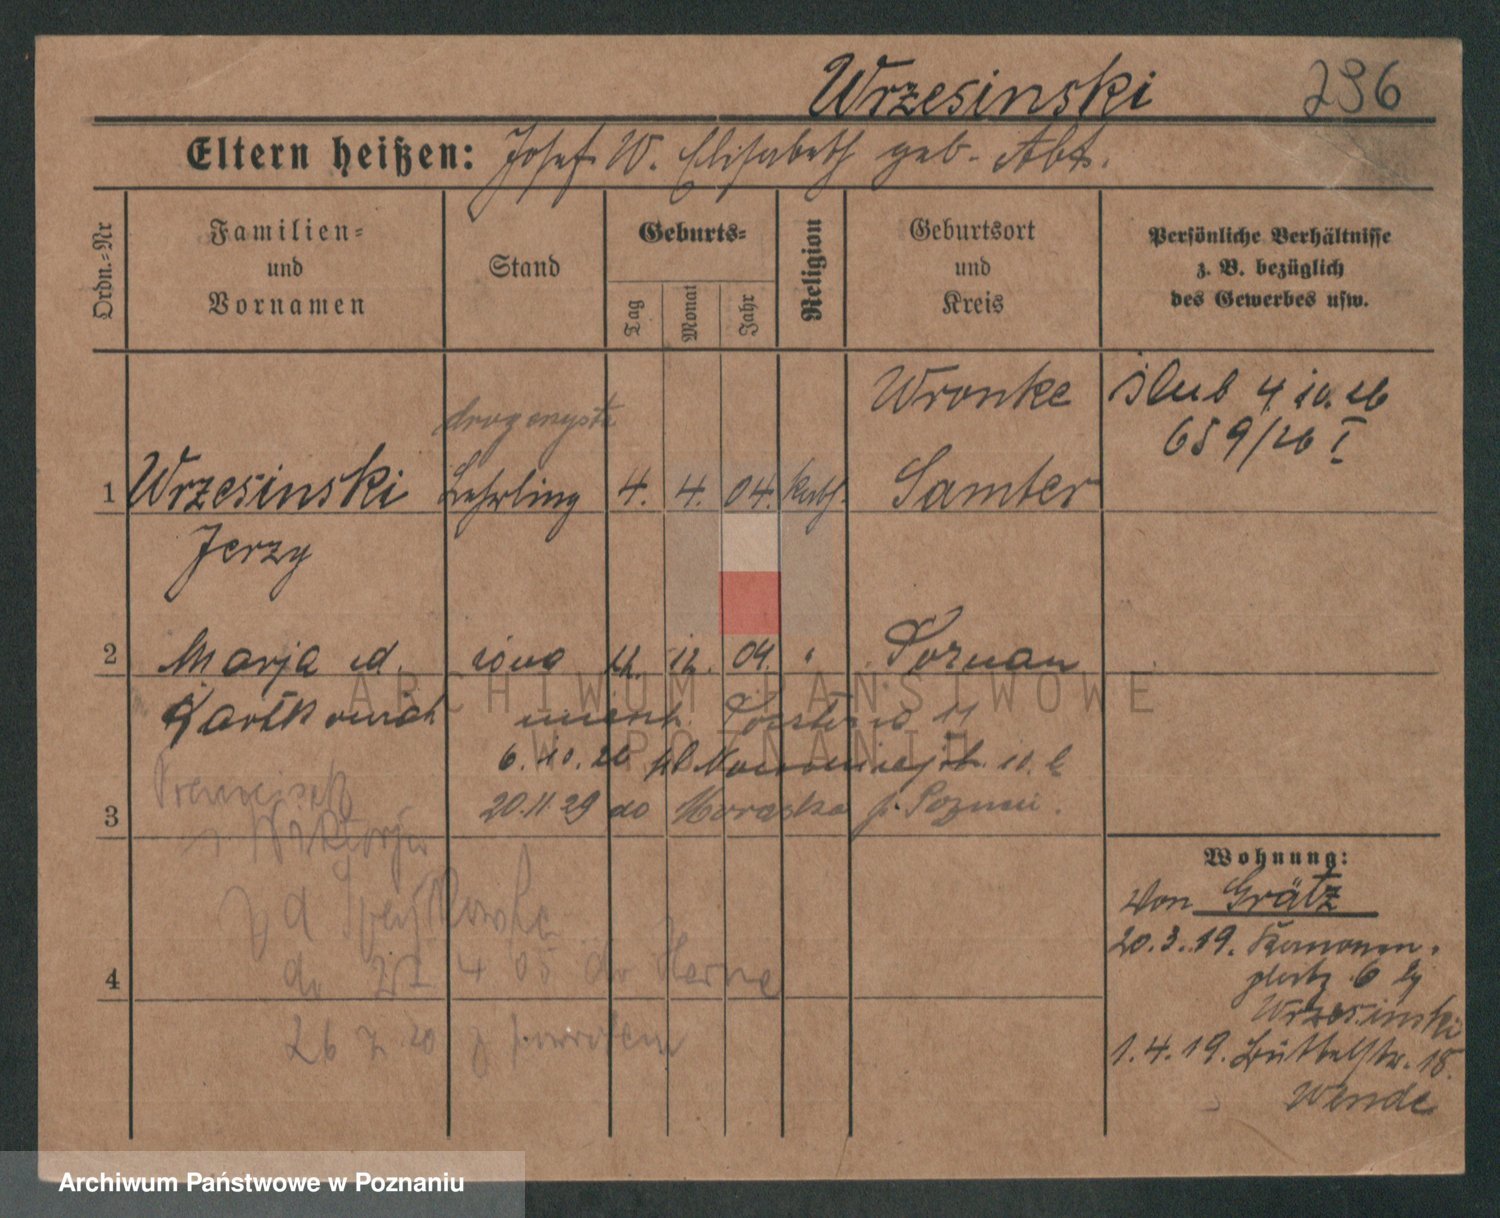 Wrzesinski 296
Eltern heißen: Josef W. Elisabeth geb. Abt.
Ordn.-Nr
Familien-
und
Vornamen
Stand
Geburts-
Tag
Monat
Jahr
Religion
Geburtsort
und
Kreis
Persönliche Verhältnisse
z. B. bezüglich
des Gewerbes usw.
drogerzysta
Wronke
ślub 4 10. 26
659/26 I
1 Wrzesinski Lehrling 4. 4. 04. kath. Samter
Jerzy
2 Marja ud. 12. 09. Poznań
6. 10. 26
3
20.11.29 do Moraska p. Poznań.
Wiktorja
4
do 4 05 do Herne
26 20 z powrotem
Wohnung:
Von Grätz
20.3.19. Kanonen-
platz 6 by
Wrzesinski
1.4.19. Büttelstr. 18.
Wende
ARCHIWUM PAŃSTWOWE
W POZNANIU
Archiwum Państwowe w Poznaniu